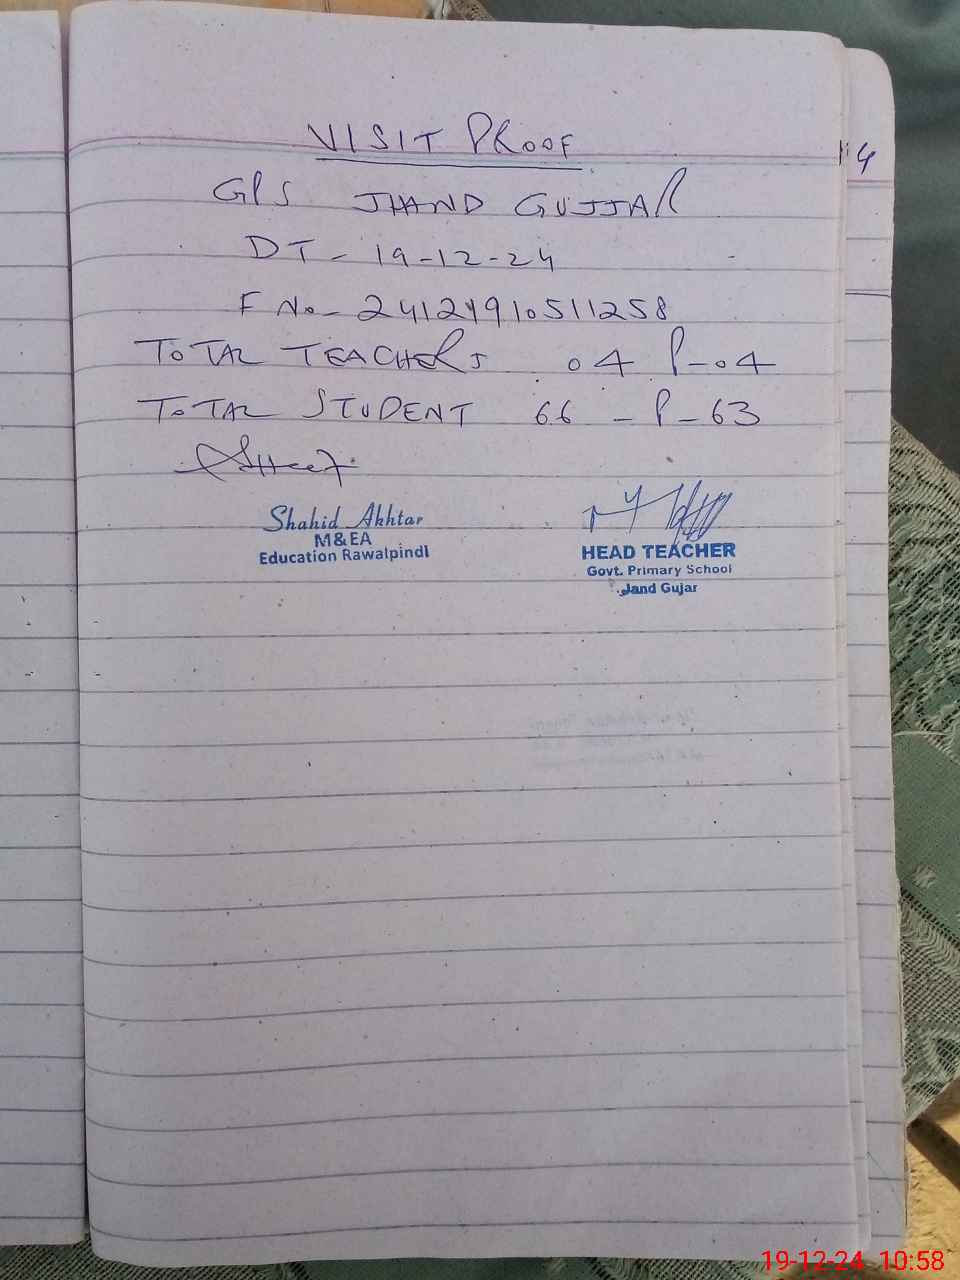 VISIT PROOF
GPS JHAND GUJJAR
DT - 19-12-24
F No- 24124910511258
TOTAL TEACHERS 04 P-04
TOTAL STUDENT 66 - P-63
Shahid Akhtar
M&EA
Education Rawalpindi
HEAD TEACHER
Govt. Primary School
Jand Gujar
4
19-12-24 10:58